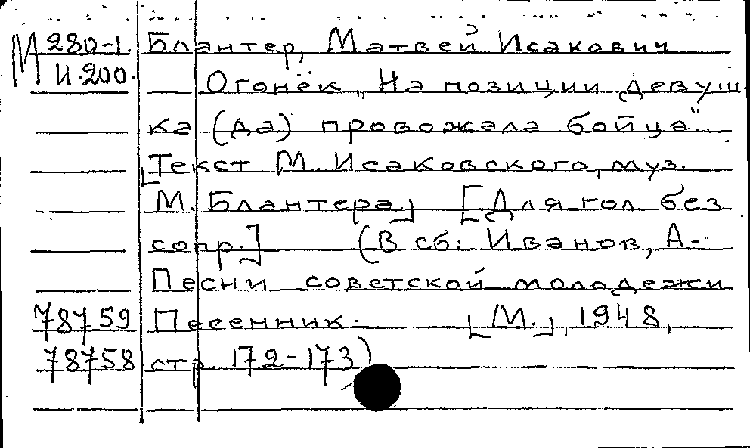 М 280-1 Блантер, Матвей Исакович
И.200. Огонёк „На позиции девуш
ка (да) провожала бойца"
[Текст М. Исаковского, муз.
М. Блантера] [Для гол без
сопр.] (В сб: Иванов, А.
Песни советской молодежи
78759 Песенник. [М.], 1948,
78758 стр 172-173)